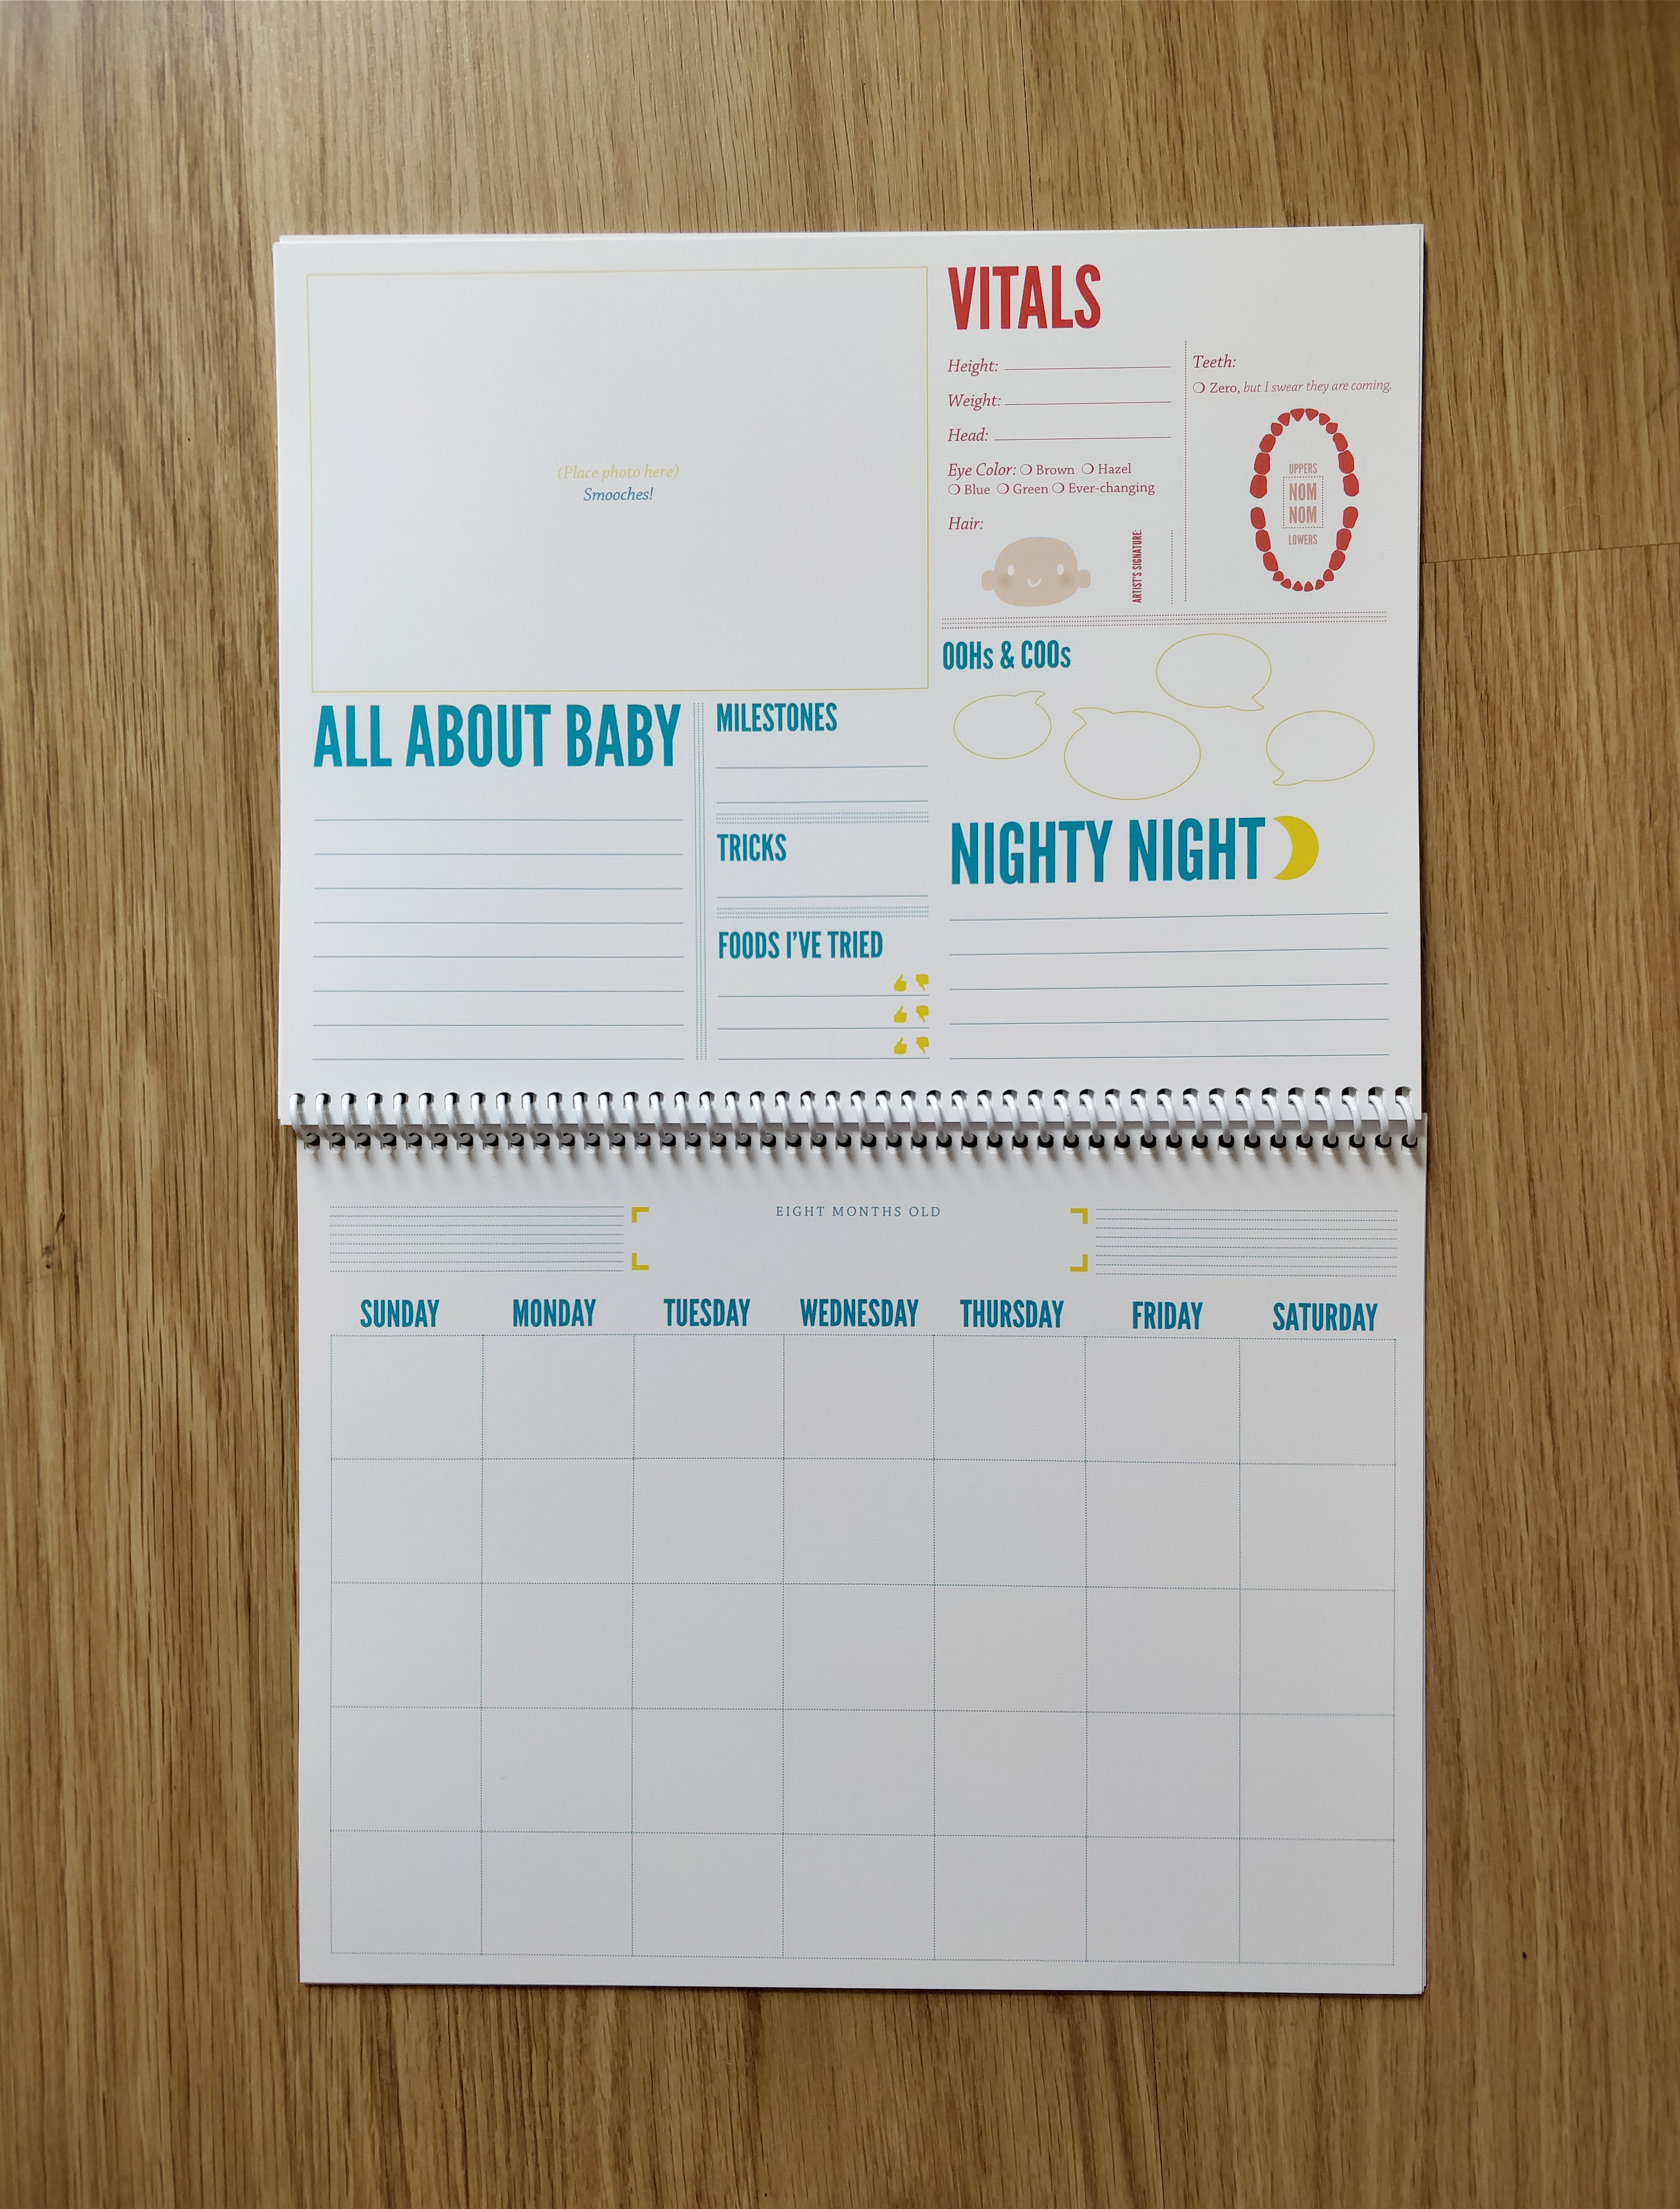 (Place photo here)
Smooches!
VITALS
Height:
Weight:
Head:
Eye Color: Brown Hazel
Blue Green Ever-changing
Hair:
ARTIST'S SIGNATURE:
Teeth:
Zero, but I swear they are coming.
UPPERS
NOM
NOM
LOWERS
ALL ABOUT BABY
MILESTONES
TRICKS
FOODS I'VE TRIED
OOHs & COOs
NIGHTY NIGHT
EIGHT MONTHS OLD
SUNDAY MONDAY TUESDAY WEDNESDAY THURSDAY FRIDAY SATURDAY